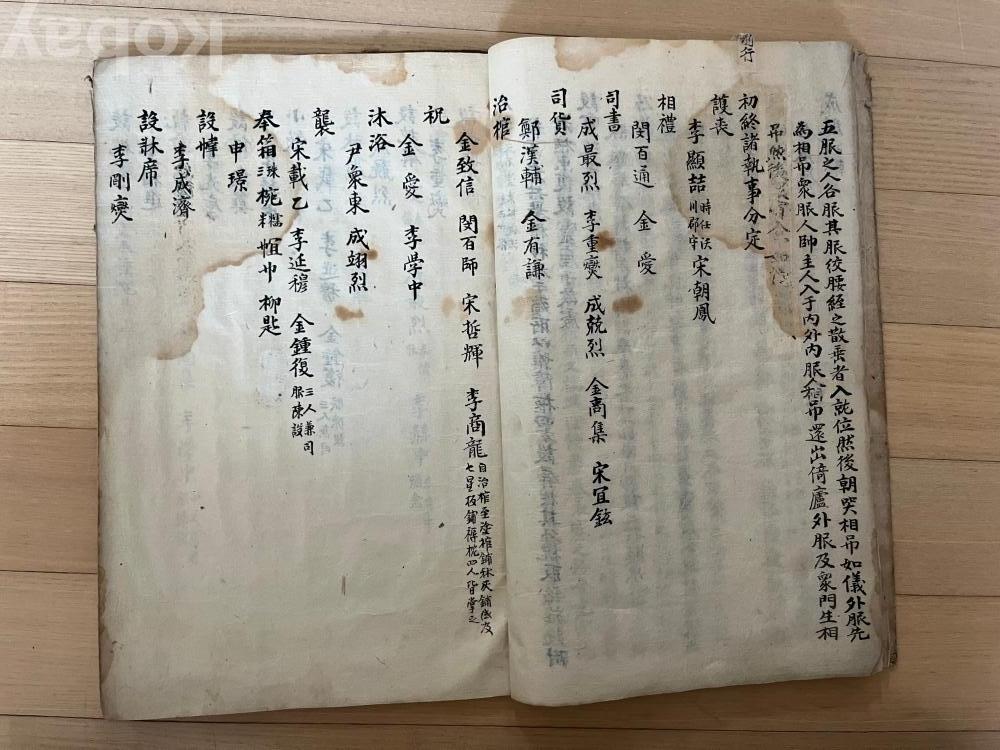 五服之人各服其服絞腰絰之散垂者入就位然後朝哭相吊如儀外服先
為相吊衆服人帥主人入于内外内服人相吊還出倚廬外服及衆門生相
初終諸執事分定
護丧
李顯喆 時任沃川郡守 宋朝鳳
相禮
閔百通 金愛
司書
成最烈 李重爕 成兢烈 金商集 宋冝鉉
司貨
鄭漢輔 金有謙
治棺
金致信 閔百師 宋哲輝 李商龍 自治棺至塗棺鋪秫灰鋪紙及七星板鋪褥枕四人皆掌之
祝
金愛 李學中
沐浴
尹象東 成翊烈
襲
宋載乙 李延穆 金鍾復 三人兼司服陳設
奉箱 珠 椀 糯 柳匙
申璟
設幃
李成濟
設牀席
李剛爕
Kobay